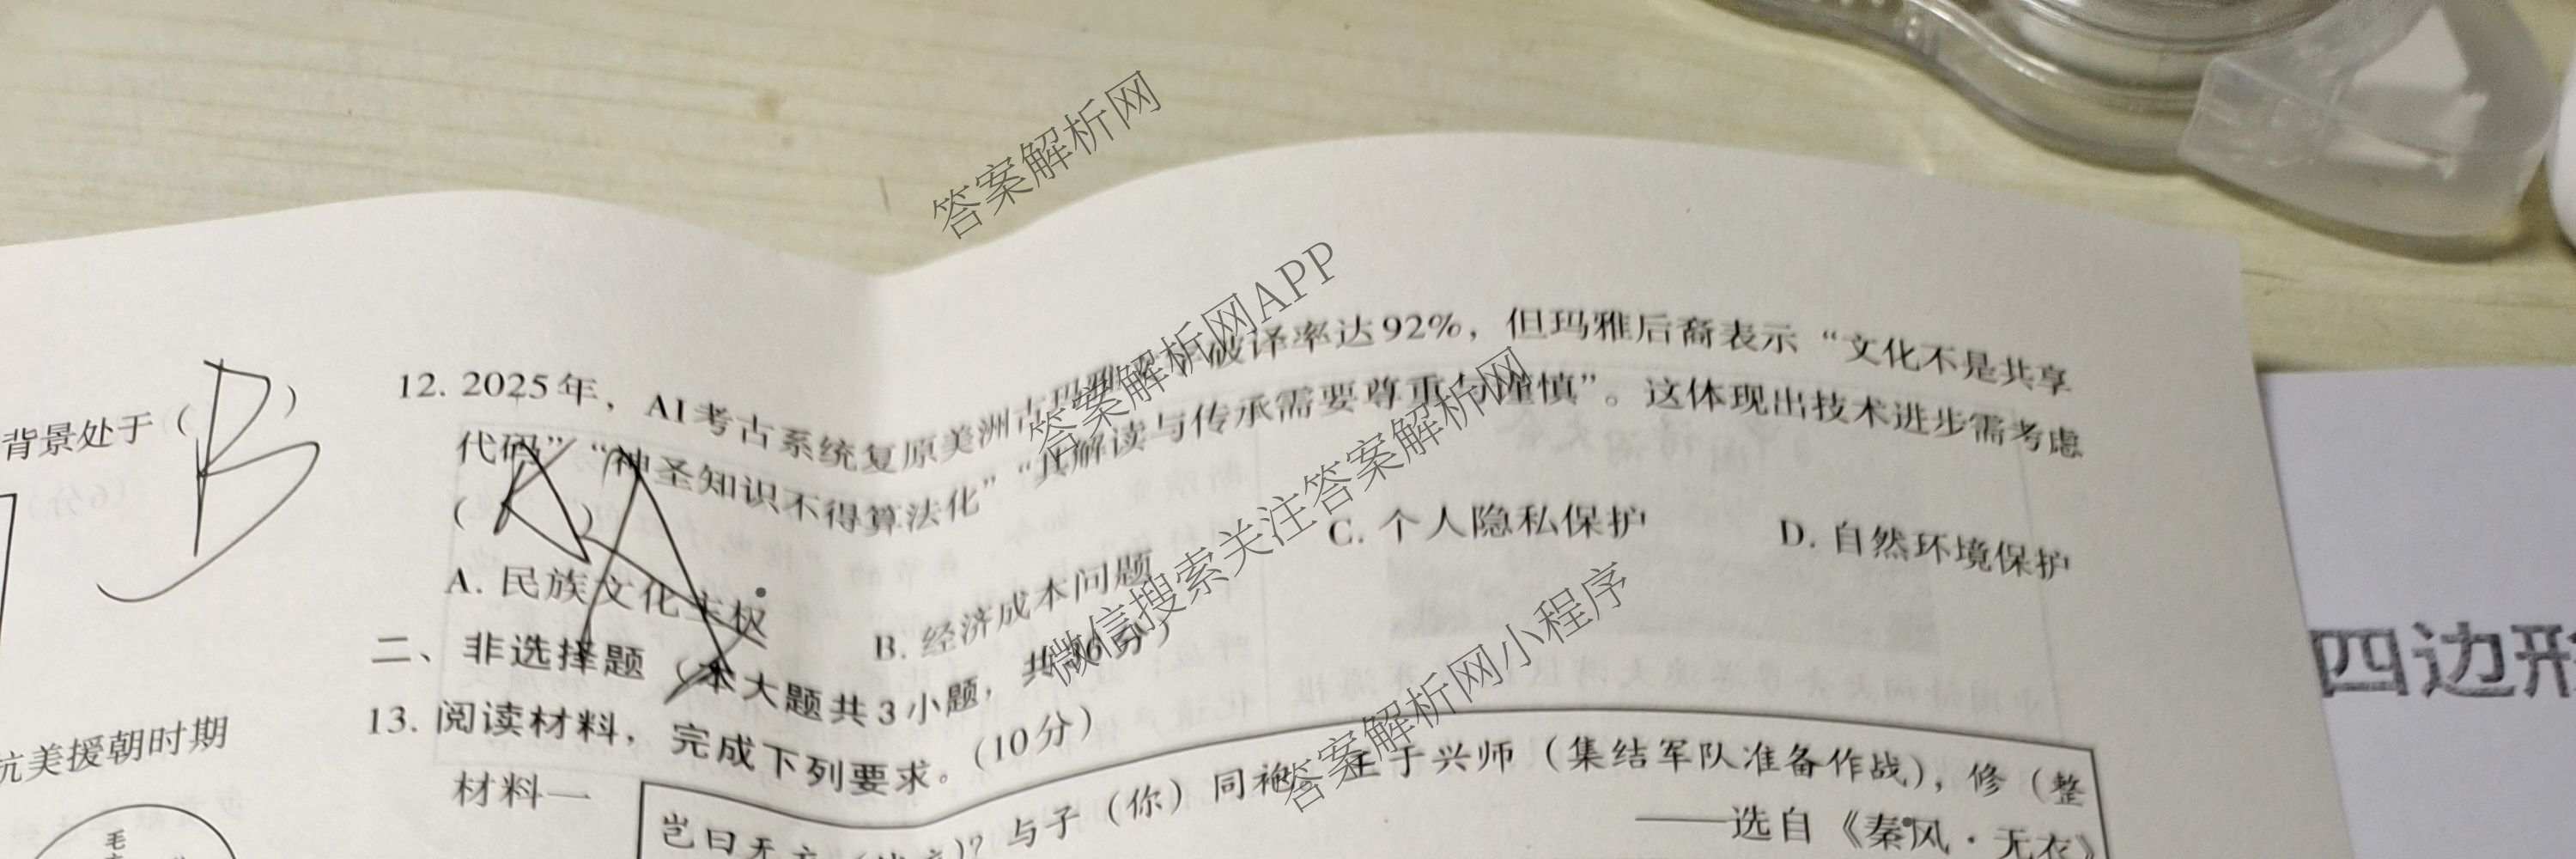 背景处于（B）
抗美援朝时期
毛
12. 2025年，AI考古系统复原美洲古玛雅 破译率达92%，但玛雅后裔表示“文化不是共享
代码”“神圣知识不得算法化”“其解读与传承需要尊重与谨慎”。这体现出技术进步需考虑
（ ）
A. 民族文化主权 B. 经济成本问题 C. 个人隐私保护 D. 自然环境保护
二、非选择题（本大题共3小题，共36分）
13. 阅读材料，完成下列要求。（10分）
材料一
岂曰无衣 ？与子（你）同袍。王于兴师（集结军队准备作战），修（整
——选自《秦风·无衣》
四边形
答案解析网
答案解析网APP
微信搜索关注答案解析网
答案解析网小程序